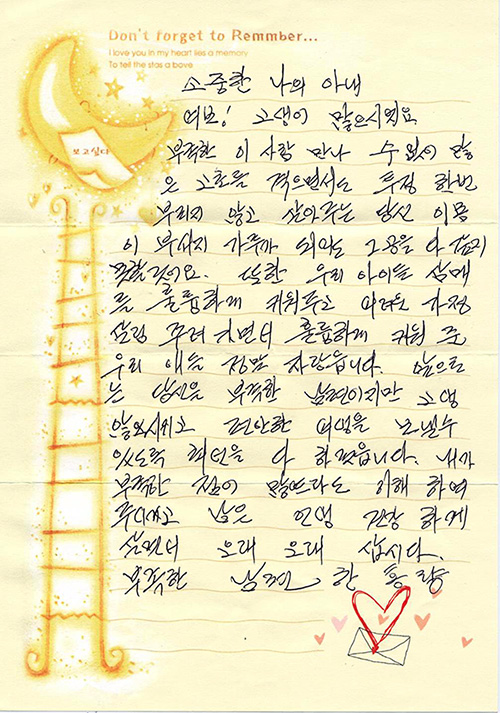 Don't forget to Remmber...
I love you in my heart lies a memory
To tell the stas a bove
보고싶다
소중한 나의 아내
여보! 고생이 많으시워요
부족한 이 사람 만나 수없이 많
은 고초을 격으면서도 투정 하번
부리지 않고 살아주는 당신 이몸
이 부서지 가루가 되어도 그공을 다 갚지
못할것이요. 또한 우리 아이들 삼매
를 훌륩하게 키워두고 어려운 가정
살림 꾸려 가면서 훌륩하게 키워 준
우리 애들 정말 자랑읍니다. 앞으로
는 당신을 부족한 남편이지만 고생
않으시키고 편안한 여생을 보낼수
있도록 최선을 다 하겠읍니다. 내가
부족한 점이 많드라도 이해 하여
주시고 남은 인생 건강 하게
살면서 오래 오래 삽시다.
부족한 남편 한